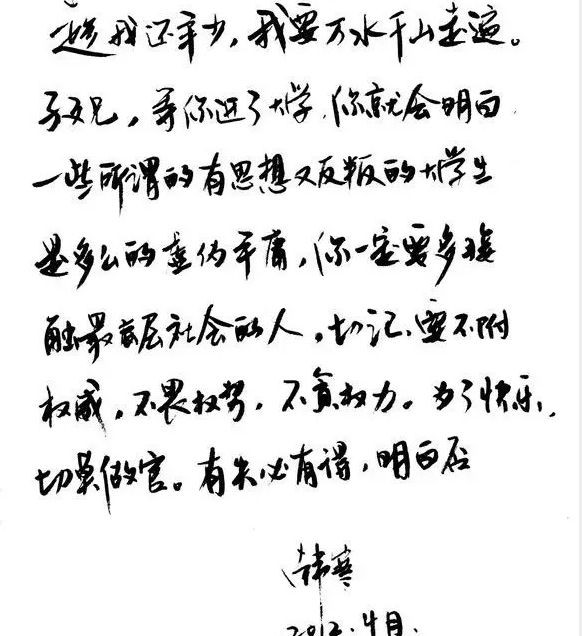 趁我还年少,我要万水千山走遍。
子夜兄,等你进了大学,你就会明白
一些所谓的有思想又反叛的大学生
是多么的虚伪平庸,你一定要多接
触最底层社会的人。切记,要不附
权威,不畏权势,不贪权力。为了快乐,
切莫做官。有失必有得,明白否
韩寒
2012.4月.